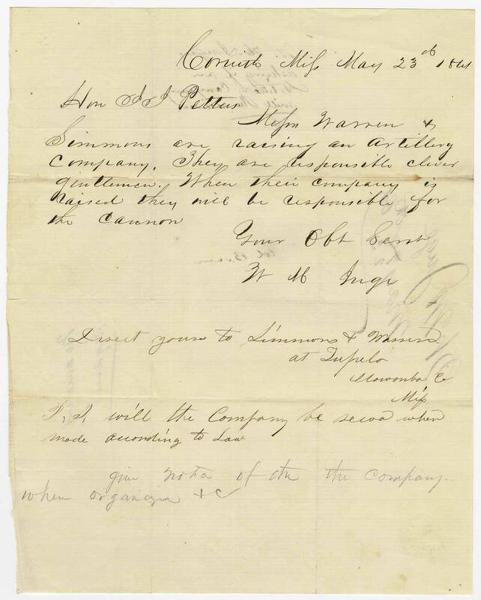 Corinth Miss May 23rd 1861
Hon J J Pettus
Messrs Warren &
Simmons are raising an Artillery
company. They are responsible clever
gentlemen. When their company is
raised they will be responsible for
the cannon
Your Obt Servt
W M Inge
Direct yours to Simmons & Warren
at Tupelo
Itawamba Co
Miss
P.S. will the Company be received when
made according to Law
give notice of the company
when organized &c